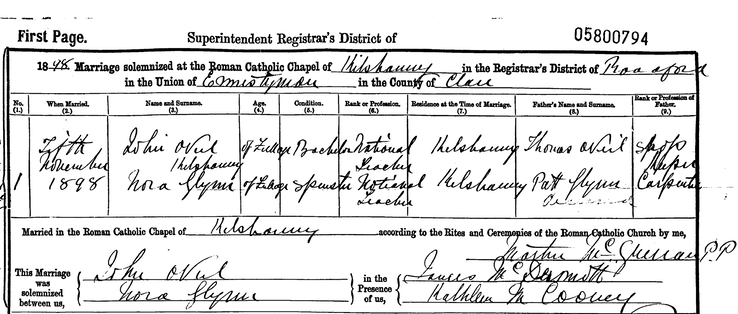 First Page. Superintendent Registrar's District of 05800794
1898 Marriage solemnized at the Roman Catholic Chapel of Kilshanny in the Registrar's District of
in the Union of Ennistymon in the County of Clare
No. (1.) When Married. (2.) Name and Surname. (3.) Age. (4.) Condition. (5.) Rank or Profession. (6.) Residence at the Time of Marriage. (7.) Father's Name and Surname. (8.) Rank or Profession of Father. (9.)
Fifth John O'Neil of Full age Bachelor National Kilshanny Thomas O'Neil Shop
November Kilshanny Teacher Keeper
1 1898 Nora Glynn of Full age Spinster National Kilshanny Patt Glynn Carpenter
Teacher Deceased
Married in the Roman Catholic Chapel of Kilshanny according to the Rites and Ceremonies of the Roman Catholic Church by me,
Martin Mc P.P
This Marriage was solemnized between us,
John O'Neil
Nora Glynn
in the Presence of us,
Mc Dermott
Kathleen M Cooney